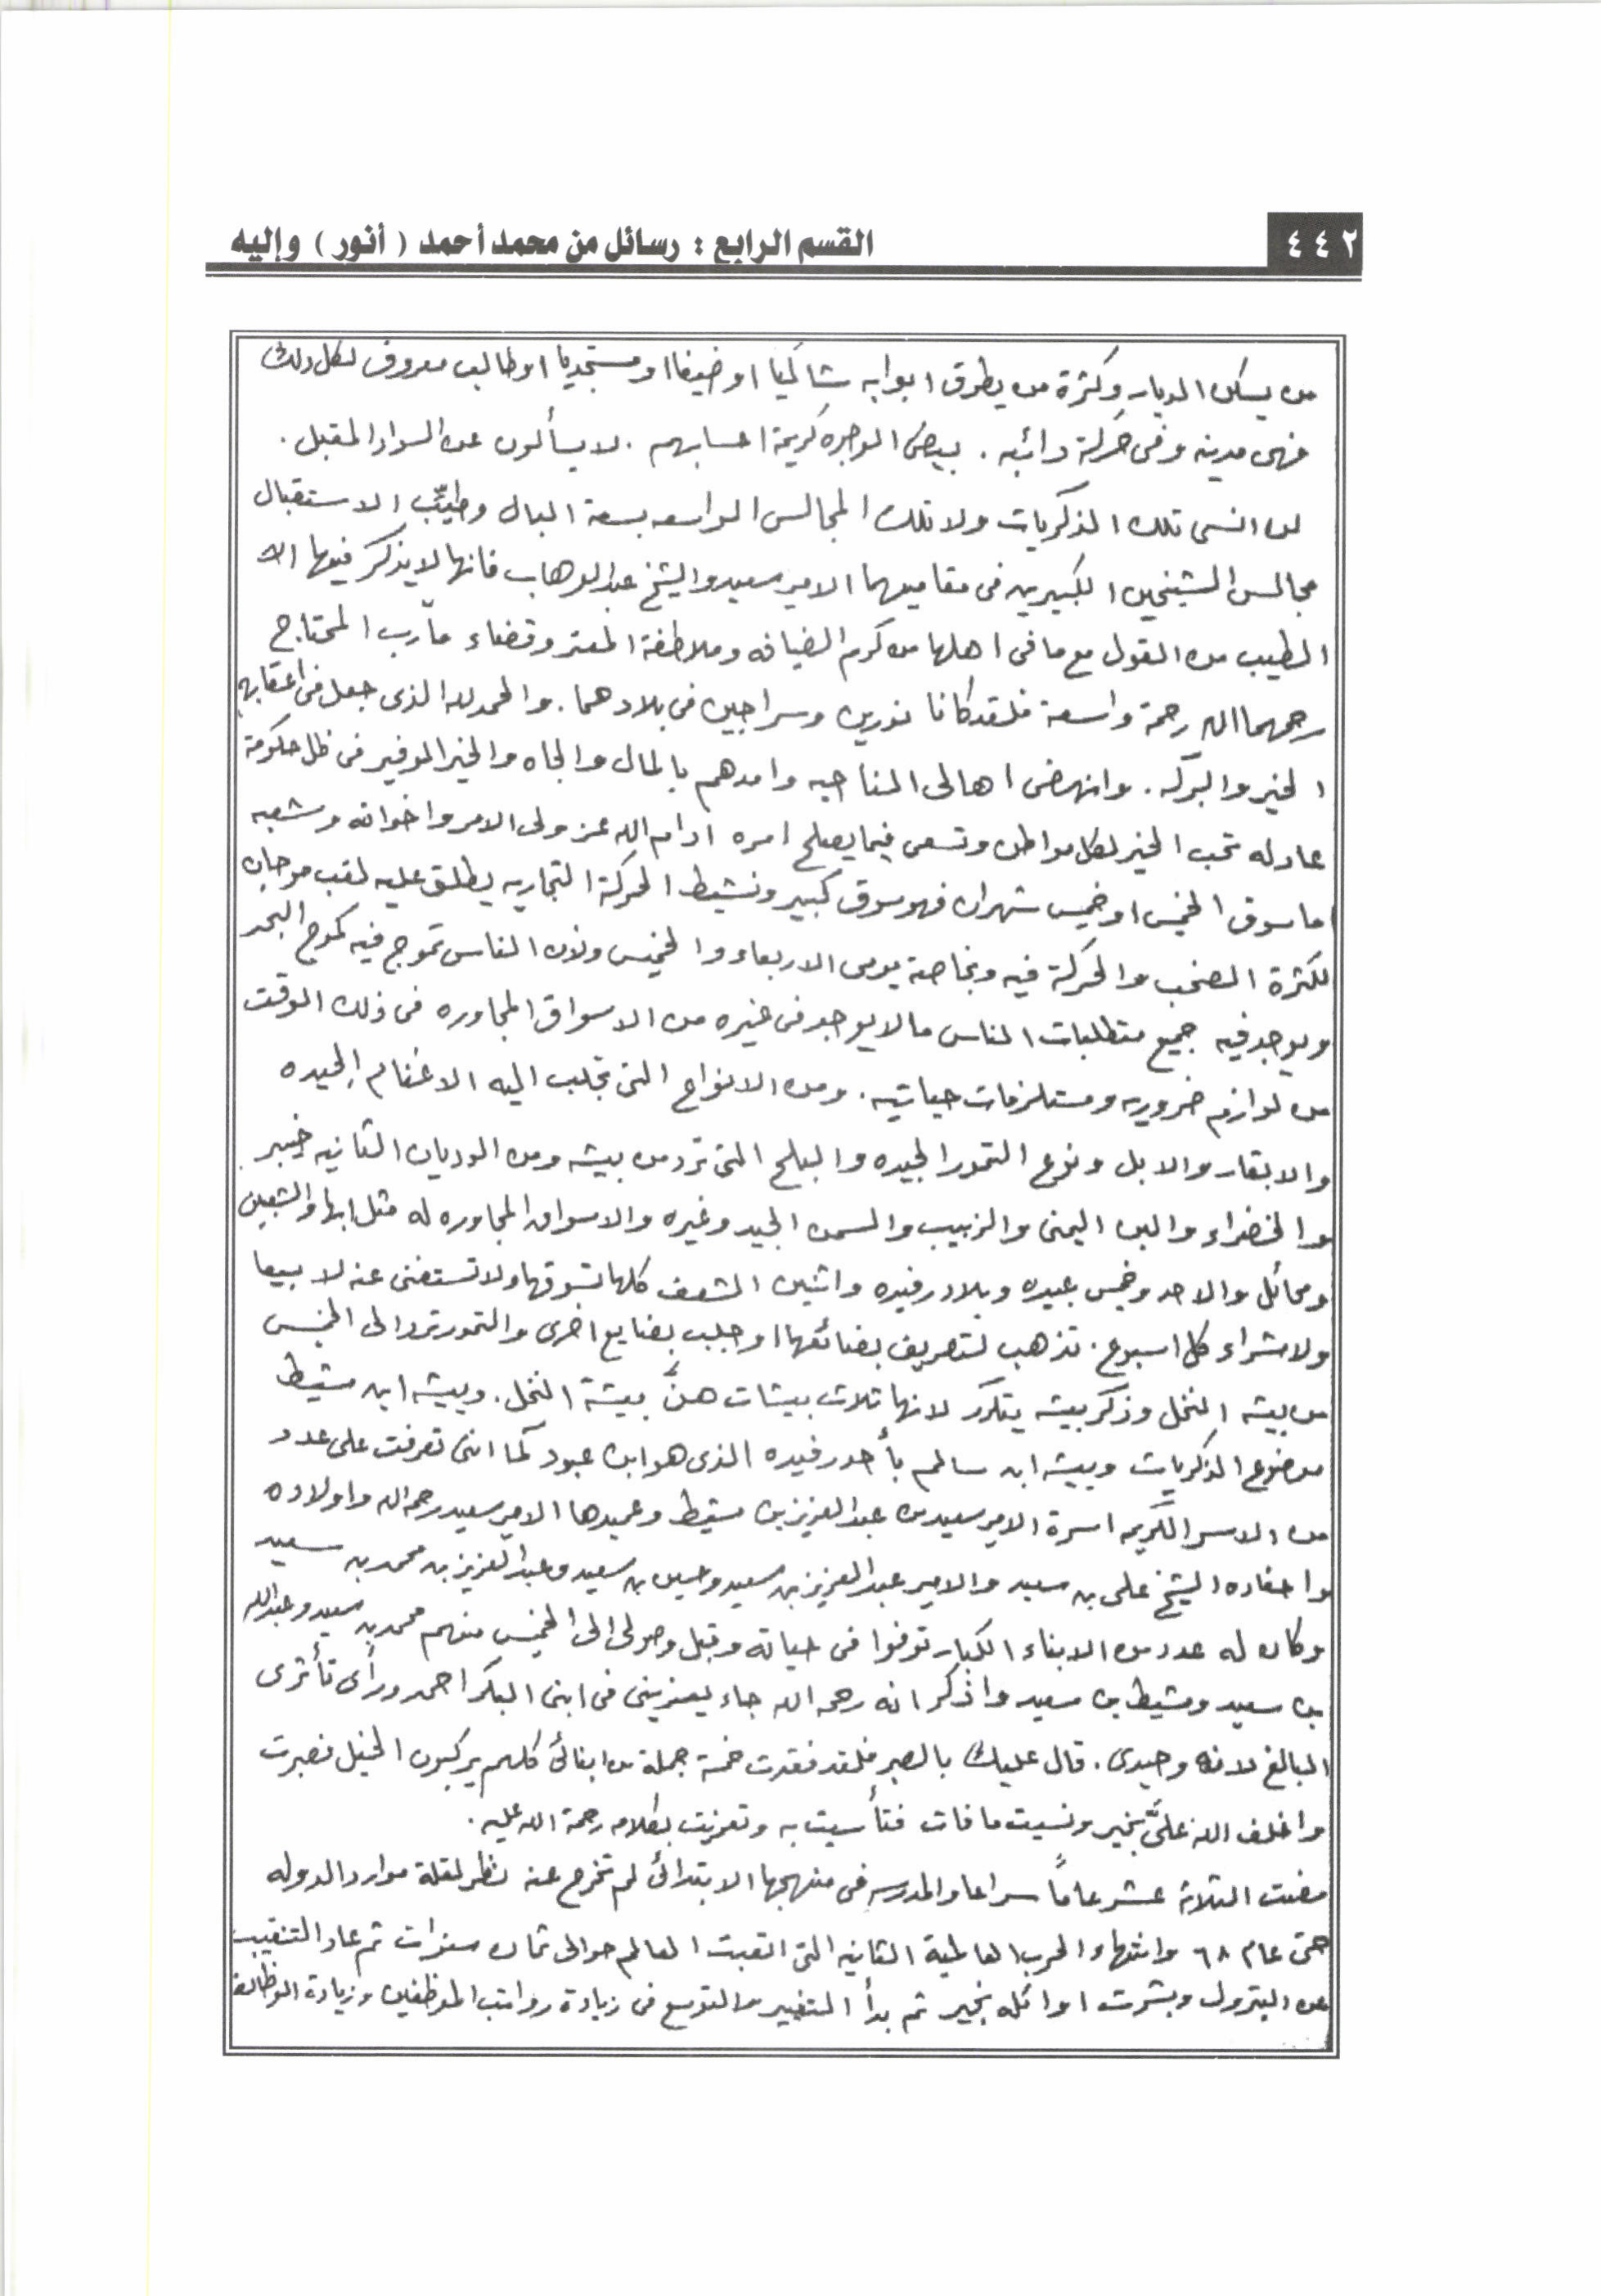 ٤٤٢
القسم الرابع : رسائل من محمد أحمد ( أنور ) وإليه
من يسكن الديار وكثرة من يطرق ابوابه شاكيا او ضيفا او مستجديا او طالب معروف لكل ذلك
فهي مدينه وفي حركة دائبه . بيض الوجوه كريمة احسابهم . لا يسألون عن السواد المقبل .
لن انسى تلك الذكريات ولا تلك المجالس الواسعه بسعة البال وطيّب الاستقبال
مجالس الشيخين الكبيرين في مقاميهما الامير سعيد والشيخ عبدالوهاب فانها لا يذكر فيها الا
الطيب من القول مع ما في اهلها من كرم الضيافه وملاطفة المعتر وقضاء مآرب المحتاج
رحمهما الله رحمة واسعة فلقد كانا نورين وسراجين في بلادهما . والحمد لله الذي جعل في اعقابهم
الخير والبركه . وانهض اهالي المناحيه وامدهم بالمال والجاه والخير الوفير في ظل حكومة
عادله تحب الخير لكل مواطن وتسعى فيما يصلح امره ادام الله عز ولي الامر واخوانه وشعبه
اما سوق الخميس او خميس شهران فهو سوق كبير ونشيط الحركة التجاريه يطلق عليه لقب موجان
لكثرة الصخب والحركة فيه وبخاصة يومي الاربعاء والخميس ولان الناس تموج فيه كموج البحر
ويوجد فيه جميع متطلبات الناس ما لا يوجد في غيره من الاسواق المجاوره في ذلك الوقت
من لوازم ضروريه ومستلزمات حياتيه . ومن الانواع التي تجلب اليه الاغنام الجيده
والابقار والابل ونوع التمور الجيده والبلح التي ترد من بيشه ومن الوديان الثانيه خيبر
والخضراء والبن اليمني والزبيب والسمن الجيد وغيره والاسواق المجاوره له مثل ابها والشعبين
ومحائل والاحد وخميس عبيده وبلاد رفيده واثنين الشعف كلها تسوقها ولا تستغني عنه لا بيعا
ولا شراء كل اسبوع . تذهب لتصريف بضائعها او جلب بضايع اخرى والتمور ترد الى الخميس
من بيشه النخل وذكر بيشه يتكرر لانها ثلاث بيشات هنَّ بيشة النخل . وبيشه ابن مشيط
موضوع الذكريات وبيشه ابن سالم بأحد رفيده الذي هو ابن عبود كما انني تعرفت على عدد
من الاسر الكريمه اسرة الامير سعيد بن عبدالعزيز بن مشيط وعميدها الامير سعيد رحمه الله واولاده
واحفاده الشيخ علي بن سعيد والامير عبدالعزيز بن سعيد وحسين بن سعيد وعبدالعزيز بن محمد بن سعيد
وكان له عدد من الابناء الكبار توفوا في حياته وقبل وصولي الى الخميس منهم محمد بن سعيد وعبدالله
بن سعيد ومشيط بن سعيد واذكر انه رحمه الله جاء يعزيني في ابني البكر احمد ورأى تأثري
البالغ لانه وحيدي . قال عليك بالصبر فلقد فقدت خمسة جملة من ابنائي كلهم يركبون الخيل فصبرت
واخلف الله عليَّ بخير ونسيت ما فات فتأسيت به وتعزيت بكلامه رحمة الله عليه .
مضت الثلاثة عشر عاماً سراعا والمدرسه في منهجها الابتدائي لم تخرج عنه نظر لقلة موارد الدوله
حتى عام ٦٨ وانتهاء الحرب العالمية الثانيه التي اتعبت العالم حوالي ثمان سنوات ثم عاد التنقيب
عن البترول وبشرت اوائله بخير ثم بدأ التغيير والتوسع في زيادة رواتب الموظفين وزيادة الوظائف